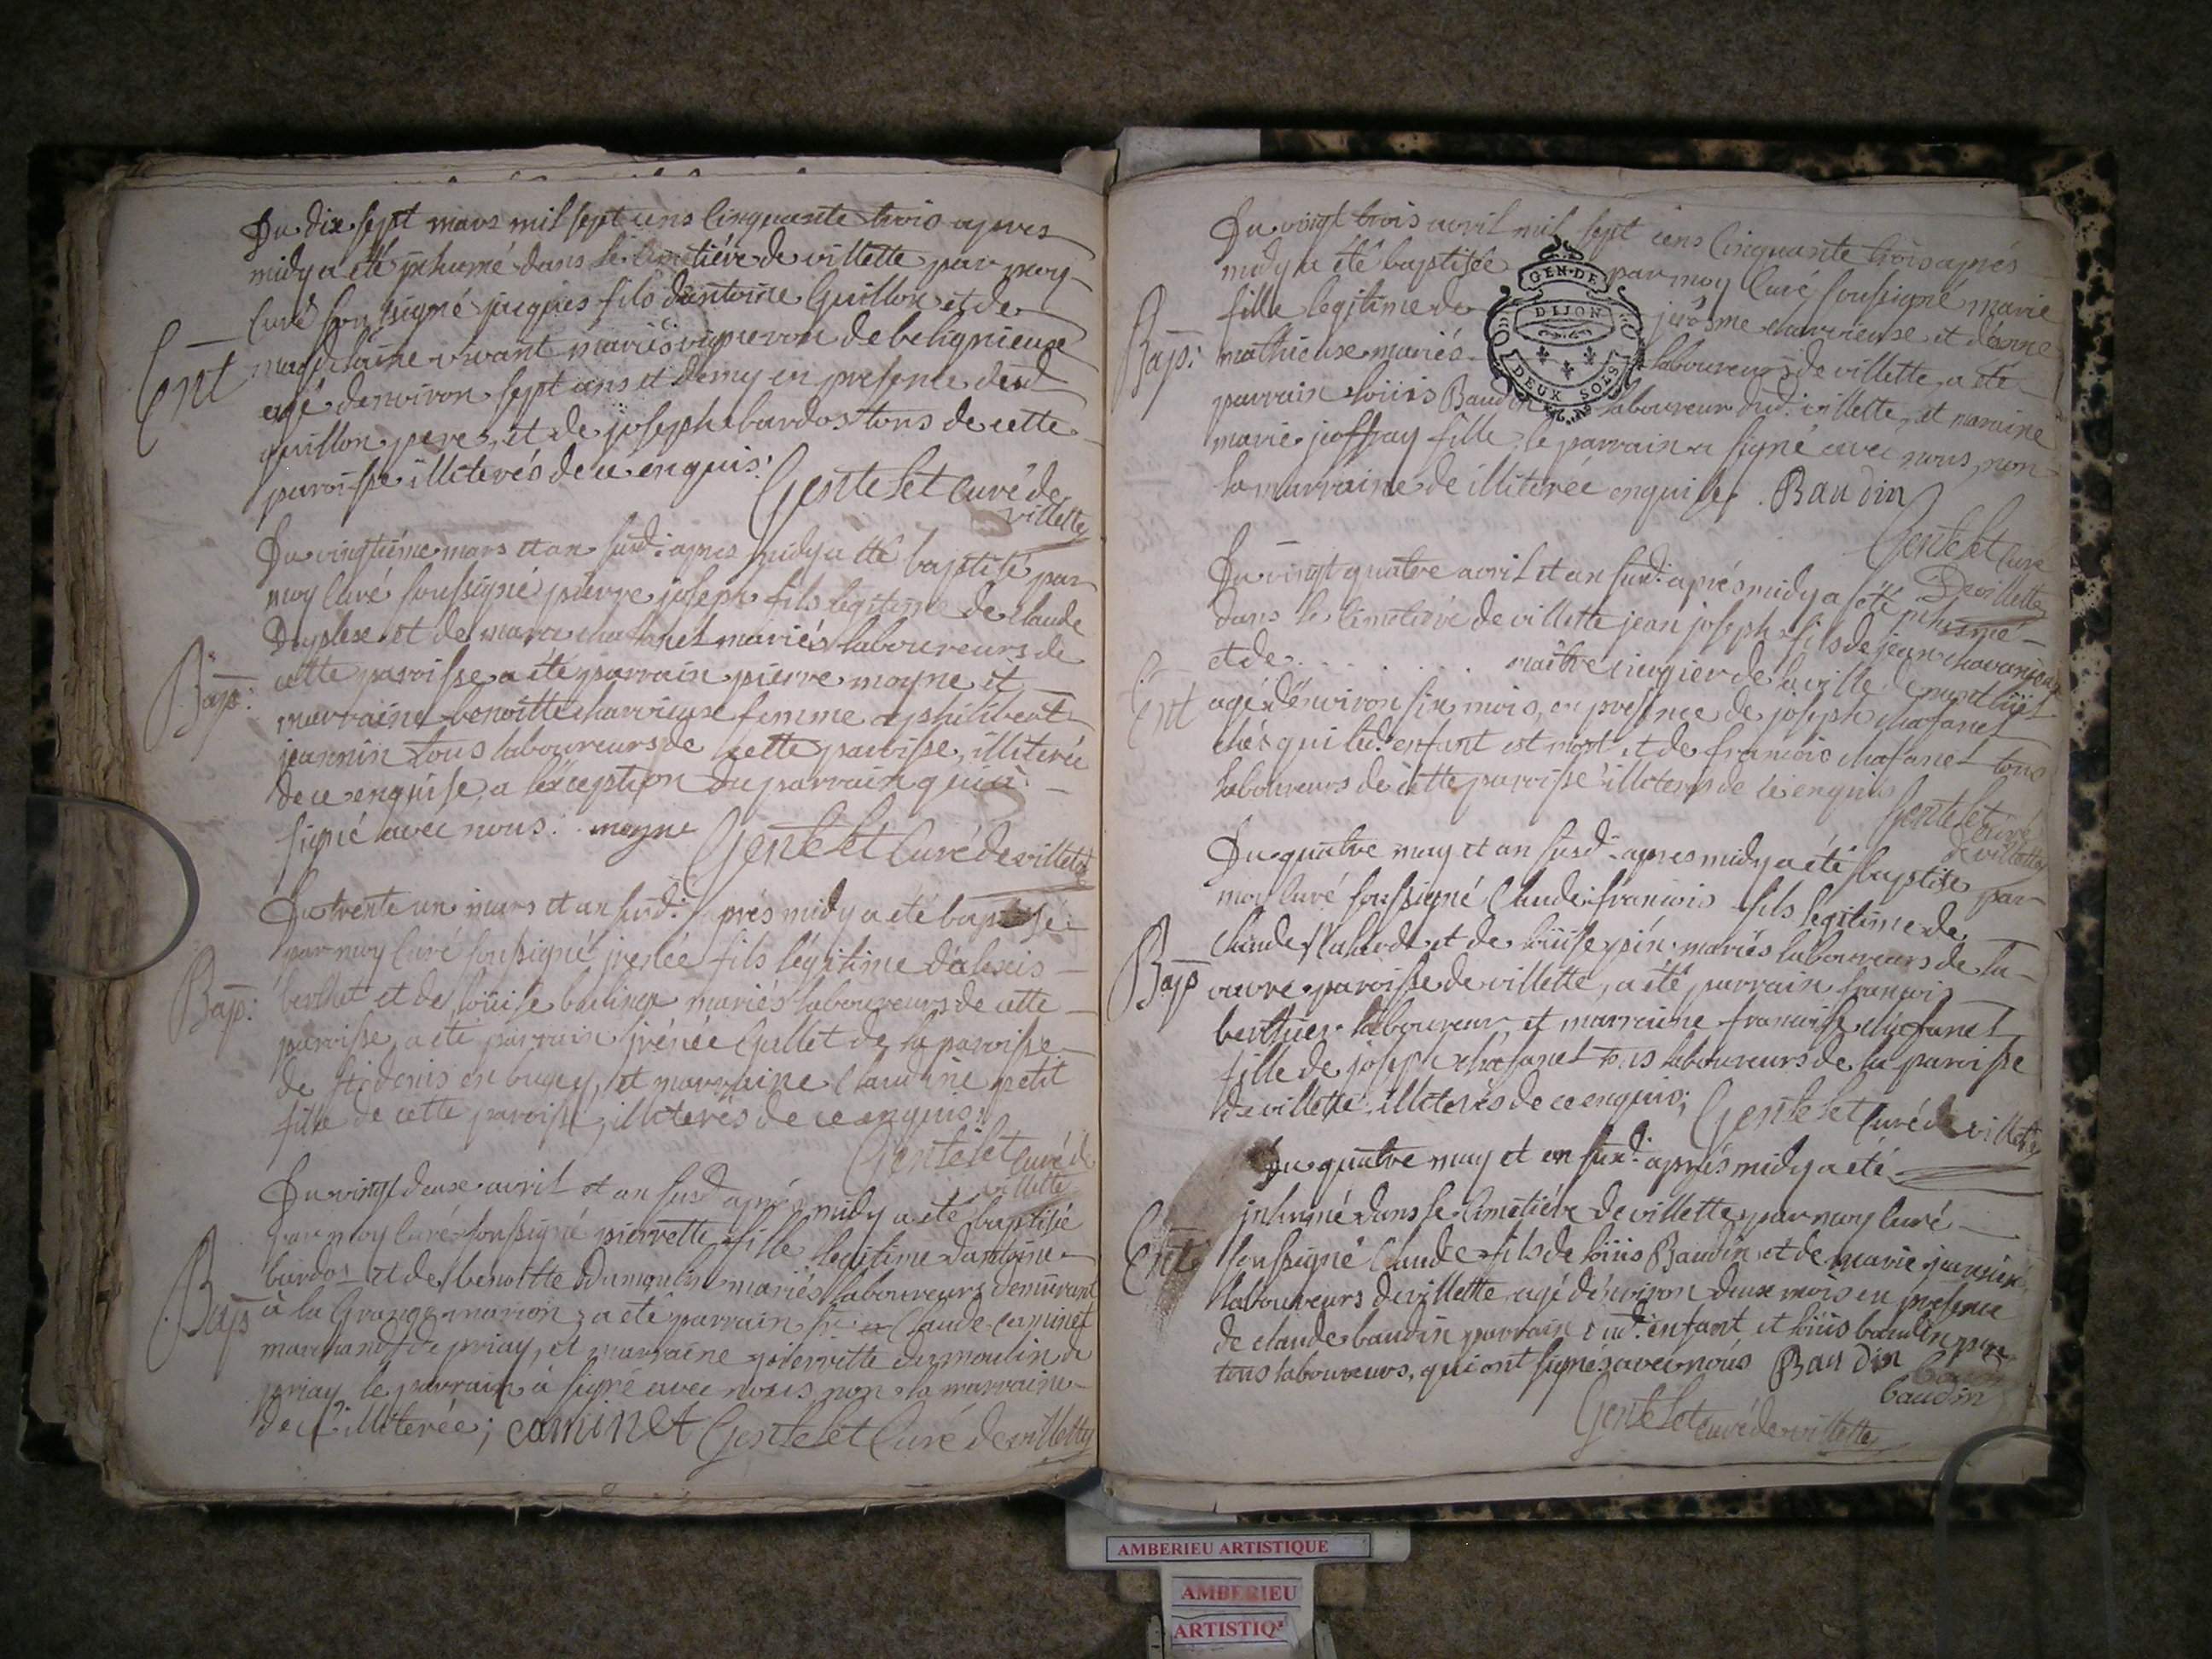 Du dix sept mars mil sept cens Cinquante trois apres
midy a été inhumé dans le Cimetiére de villette par moy
Curé soussigné jacques fils dantoine Guillon et de
magdelaine vivant mariés vigneron de belignieux
Ent
agé denviron sept ans et demy en presence dud
guillon pere, et de joseph bardos tous de cette
paroisse illiterés de ce enquis.
Gentelet Curé de
villette
Du vingtiéme mars et an susd. apres midy a été baptisé par
moy Curé soussigné pierre joseph fils legitime de claude
et de mariés laboureurs de
Bap:
cette paroisse a été parrain pierre moyne et
marraine benoitte charvieux femme philibert
jeannin tous laboureurs de cette paroisse, illiterée
de ce enquise, a léxception du parrain qui a
signé avec nous. moyne
Gentelet Curé de villette
Du trente un mars et an susd. aprés midy a été baptisé
par moy Curé soussigné irenée fils légitime d'alexis
Bap:
et de loüise mariés laboureurs de cette
paroisse, a été parrain irénée Gallet de la paroisse
de St denis en bugey, et marraine Claudine petit
fille de cette paroisse, illiterés de ce enquis.
Gentelet Curé de
villette
Du vingt deux avril et an susd aprés midy a été baptisée
par moy Curé soussigné pierrette fille legitime d'antoine
bardos et de benoitte dumoulin mariés laboureurs demeurant
Bap
à la Grange marion, a été parrain Claude caminet
marchand de priay, et marraine pierrette dumoulin de
priay le parrain à signé avec nous non la marraine
de illiterée; caminet Gentelet Curé de villette
Du vingt trois avril mil sept cens Cinquante trois aprés
midy a été baptisée par moy Curé soussigné marie
GEN. DE
DIJON
DEUX SOLS
fille legitime de jérosme charvieux et d'anne
Bap:
mathieux mariés laboureurs de villette a été
parrain loüis Baudin laboureur dud. villette, et maraine
marie jeoffray fille, le parrain a signé avec nous, non
la marraine de illiterée enquise. Baudin
Gentelet Curé
De villette
Du vingt quatre avril et an susd. aprés midy a été inhumé
dans le Cimetiére de villette jean joseph fils de jean
et de . . . . . . maitre de la ville de
Ent
agé d'environ six mois, en presence de joseph chafanel
chés qui led. enfant est mort et de francois chafanel tous
laboureurs de cette paroisse illiterés de ce enquis
Gentelet Curé
de villette
Du quatre may et an susd. apres midy a été baptisé par
moy Curé soussigné Claude francois fils légitime de
Claude et de loüise mariés laboureurs de la
Bap
paroisse de villette, a été parrain francois
berthier laboureur et marraine francoise chafanel
fille de joseph chafanel tous laboureurs de la paroisse
de villette illiterés de ce enquis; Gentelet Curé de villette
Du quatre may et an susd. aprés midy a été
inhumé dans le Cimetiére de villette par moy Curé
Ent
soussigné Claude fils de loüis Baudin et de marie
laboureurs de villette agé d'environ deux mois en presence
de claude baudin parrain dud. enfant et loüis baudin pere
tous laboureurs, qui ont signés avec nous Baudin
baudin
Gentelet curé de villette
AMBERIEU ARTISTIQUE
AMBERIEU
ARTISTIQ